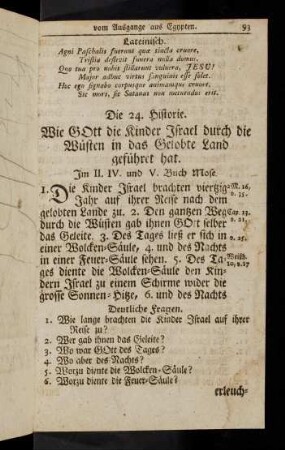 vom Ausgange aus Egypten. 93
Lateinisch.
Agni Paschalis fuerant quæ tincta cruore,
Tristia destexit funera nulla domus,
Quo tua pro nobis stillarunt vulnera, JESU!
Major adhuc virtus sanguinis esse solet.
Hoc ego signabo corpusque animamque cruore,
Sic mors, sic Satanas non metuendus erit.
Die 24. Historie.
Wie GOtt die Kinder Israel durch die
Wüsten in das Gelobte Land
geführet hat.
Im II. IV. und V. Buch Mose.
1. Die Kinder Israel brachten viertzig
Jahr auf ihrer Reise nach dem
gelobten Lande zu. 2. Den gantzen Weg
durch die Wüsten gab ihnen GOtt selber
das Geleite. 3. Des Tages ließ er sich in
einer Wolcken-Säule, 4. und des Nachts
in einer Feuer-Säule sehen. 5. Des Ta-
ges diente die Wolcken-Säule den Kin-
dern Israel zu einem Schirme wider die
grosse Sonnen-Hitze, 6. und des Nachts
Deutliche Fragen.
1. Wie lange brachten die Kinder Israel auf ihrer
Reise zu?
2. Wer gab ihnen das Geleite?
3. Wo war GOtt des Tages?
4. Wo aber des Nachts?
5. Worzu diente die Wolcken-Säule?
6. Worzu diente die Feuer-Säule?
erleuch-